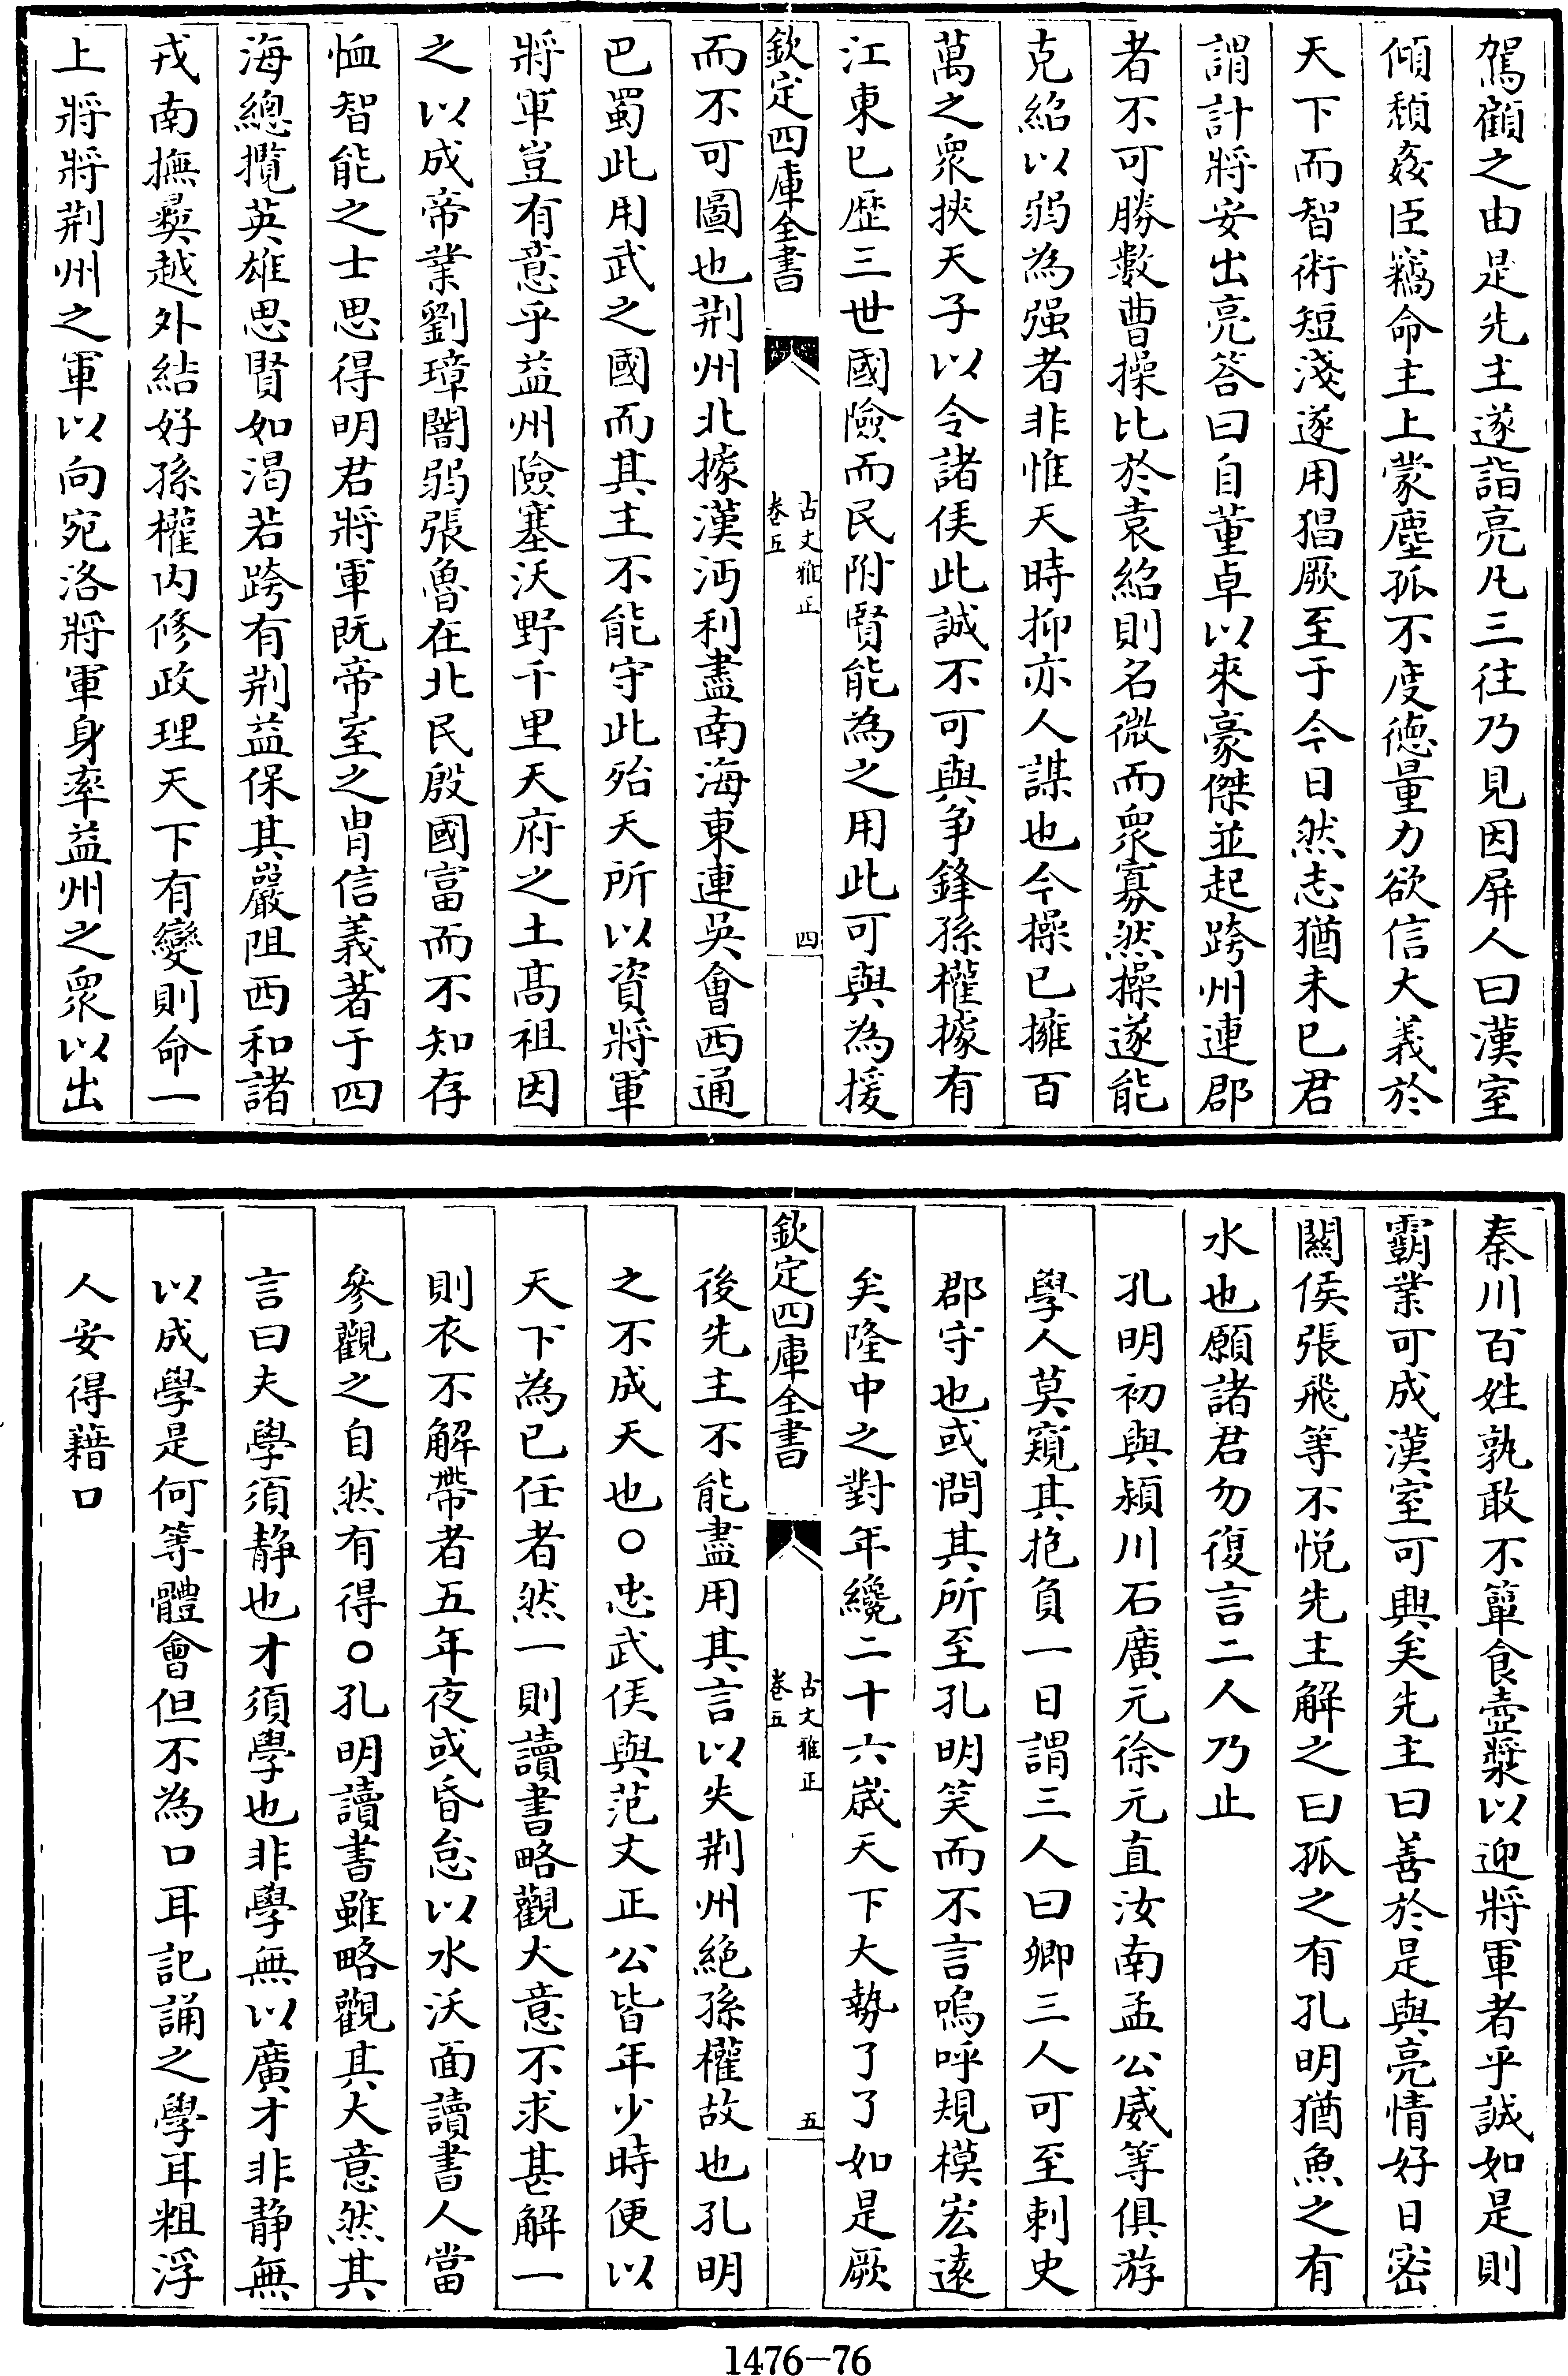 駕顧之由是先主遂詣亮凡三往乃見因屏人曰漢室
傾頹姦臣竊命主上蒙塵孤不度德量力欲信大義於
天下而智術短淺遂用猖厥至于今日然志猶未已君
謂計將安出亮答曰自董卓以來豪傑並起跨州連郡
者不可勝數曹操比於袁紹則名微而衆寡然操遂能
克紹以弱為强者非惟天時抑亦人謀也今操已擁百
萬之衆挾天子以令諸侯此誠不可與争鋒孫權據有
江東已歴三世國險而民附賢能為之用此可與為援
欽定四庫全書
古文雅正
卷五
四
而不可圖也荆州北據漢沔利盡南海東連吳會西通
巴蜀此用武之國而其主不能守此殆天所以資將軍
將軍豈有意乎益州險塞沃野千里天府之土髙祖因
之以成帝業劉璋闇弱張魯在北民殷國富而不知存
恤智能之士思得明君將軍既帝室之胄信義著于四
海總攬英雄思賢如渴若跨有荆益保其巖阻西和諸
戎南撫彛越外結好孫權内修政理天下有變則命一
上將將荆州之軍以向宛洛將軍身率益州之衆以出
秦川百姓孰敢不簞食壺漿以迎將軍者乎誠如是則
霸業可成漢室可興矣先主曰善於是與亮情好日密
關侯張飛等不悦先主解之曰孤之有孔明猶魚之有
水也願諸君勿復言二人乃止
孔明初與潁川石廣元徐元直汝南孟公威等俱游
學人莫窺其抱負一日謂三人曰卿三人可至刺史
郡守也或問其所至孔明笑而不言嗚呼規模宏遠
矣隆中之對年纔二十六嵗天下大勢了了如是厥
欽定四庫全書
古文雅正
卷五
五
後先主不能盡用其言以失荆州絶孫權故也孔明
之不成天也○忠武侯與范文正公皆年少時便以
天下為已任者然一則讀書略觀大意不求甚解一
則衣不解帶者五年夜或昏怠以水沃面讀書人當
參觀之自然有得○孔明讀書雖略觀其大意然其
言曰夫學須静也才須學也非學無以廣才非静無
以成學是何等體會但不為口耳記誦之學耳粗浮
人安得藉口
1476-76